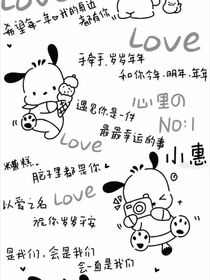 希望每一年♡我的身边
都有你
Love
手牵手,岁岁年年
和你今年、明年、年年
Love
遇见你是一件
最最幸运的事
心里の
NO:1
糟糕..
脑子里都是你
小惠
以爱之名
Love
祝你岁岁平安
是我们,会是我们
会一直是我们